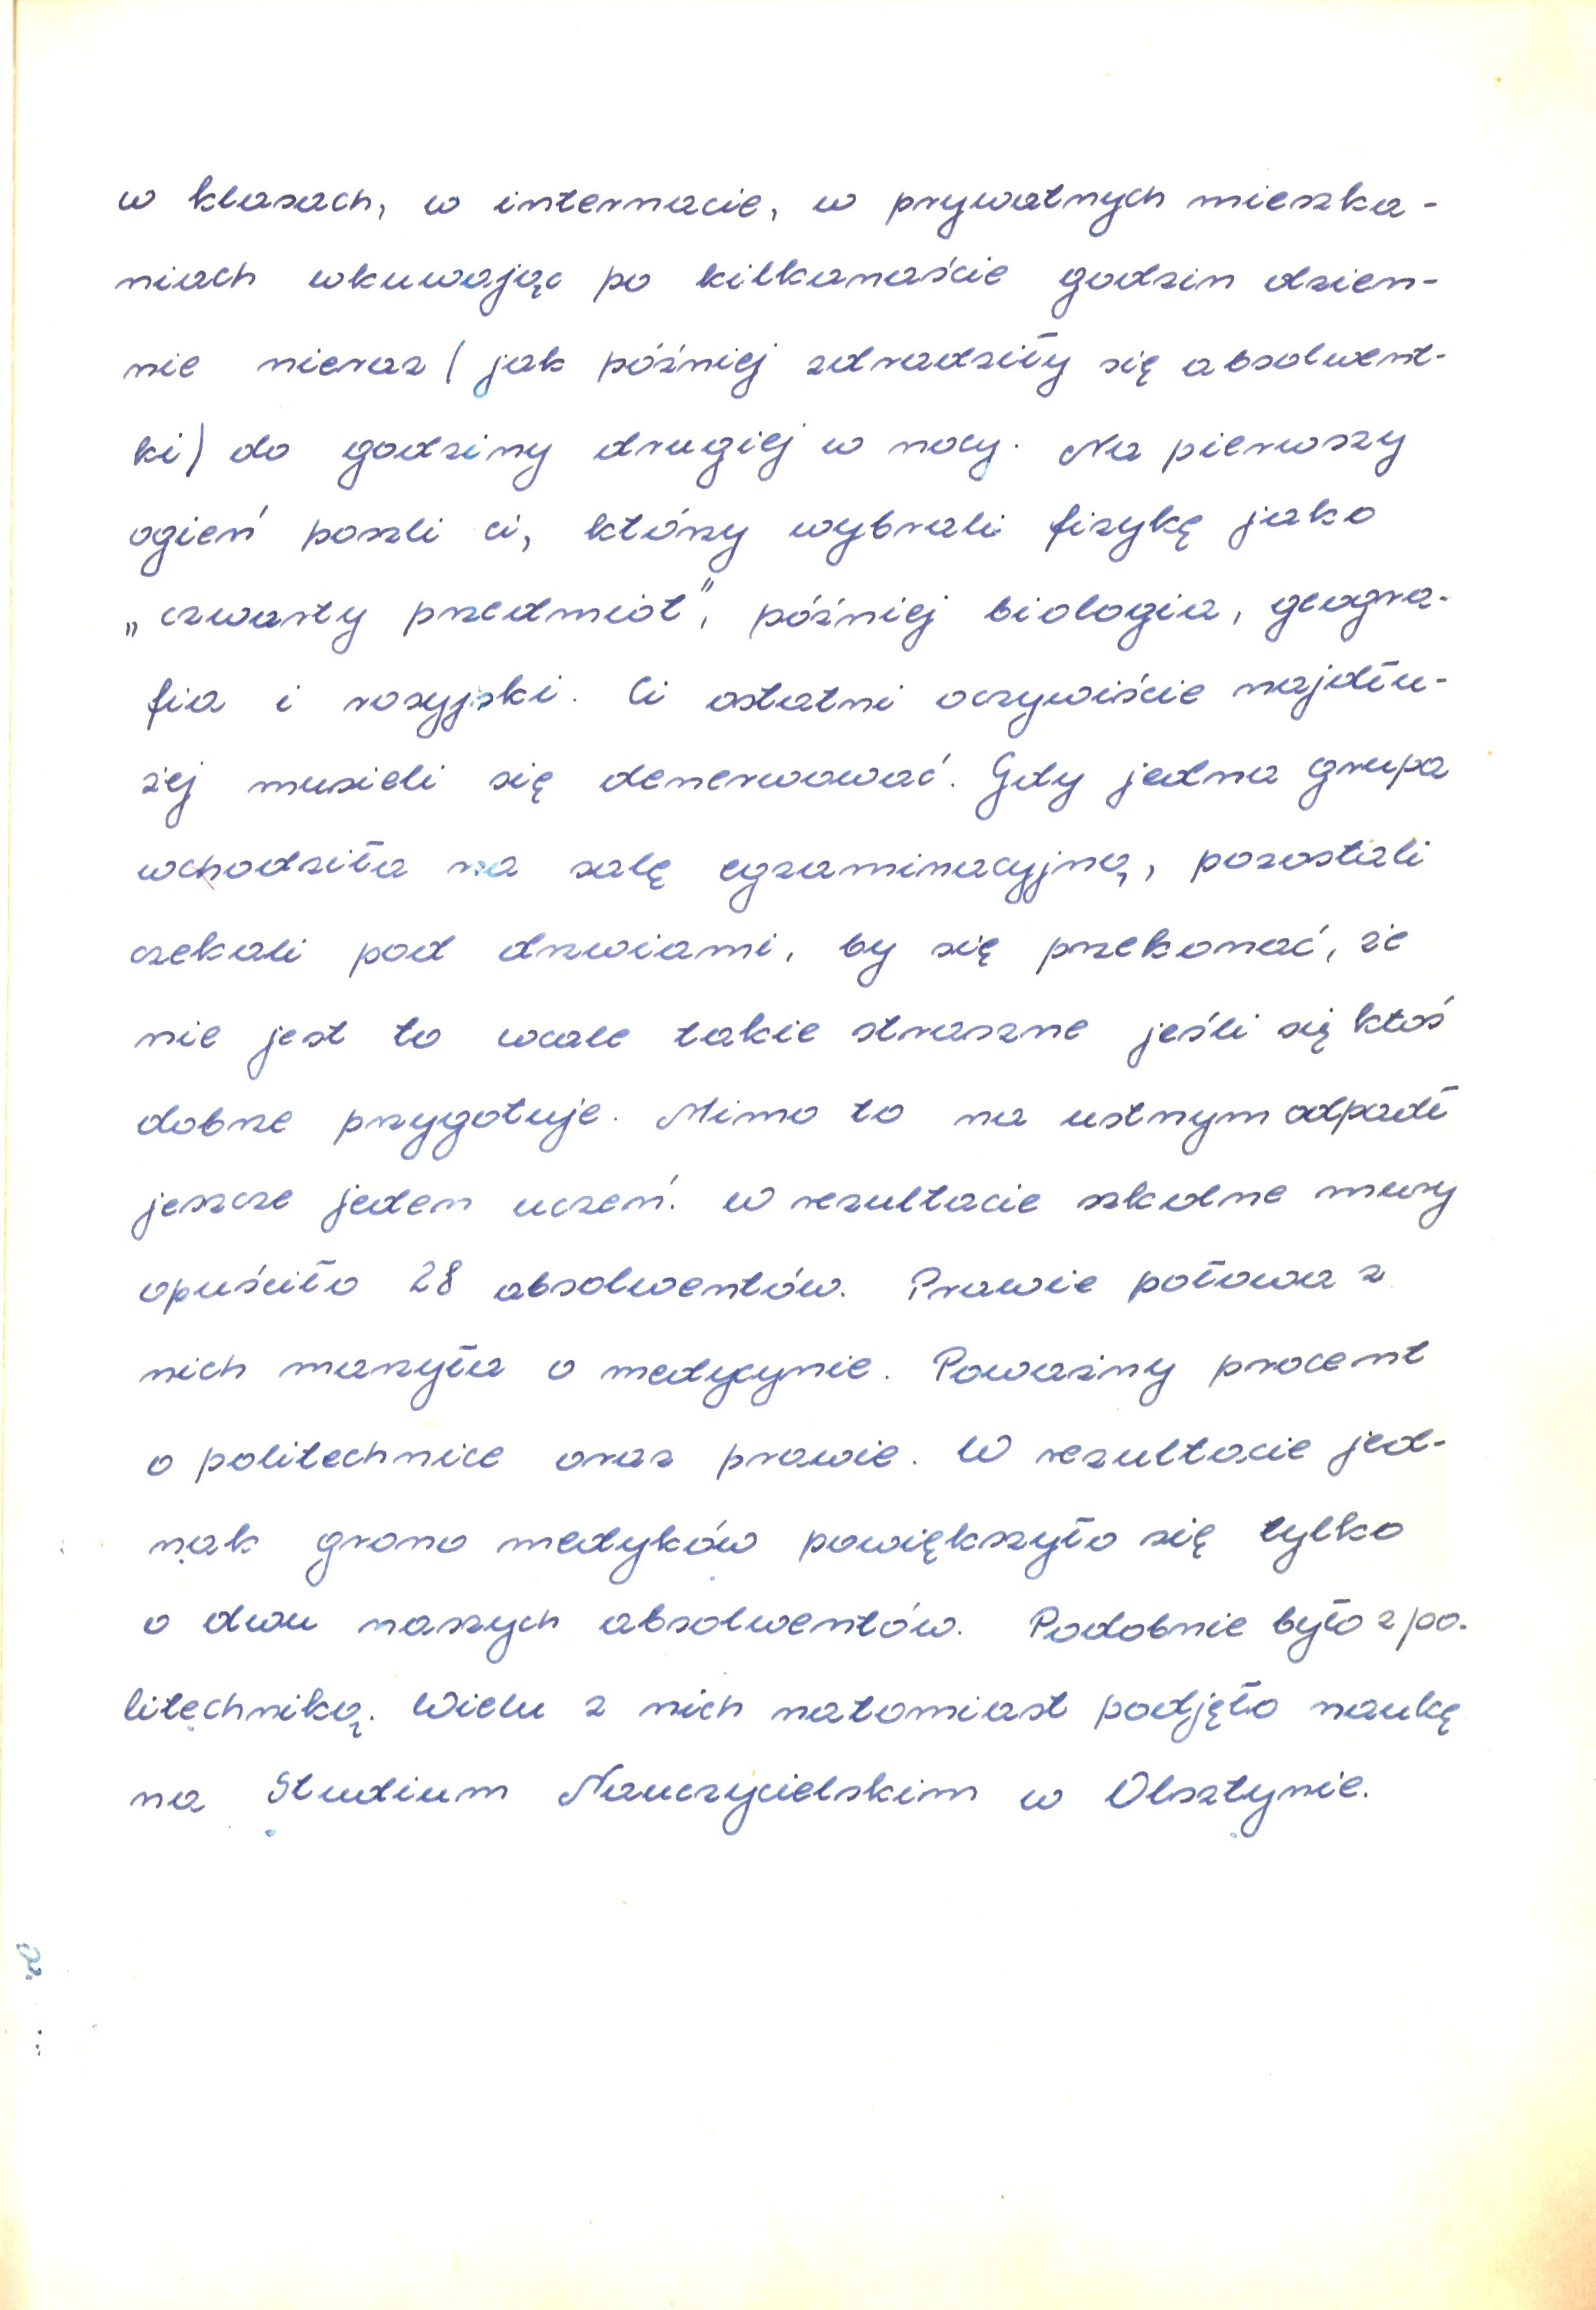 w klasach, w internacie, w prywatnych mieszka-
niach wkuwając po kilkanaście godzin dzien-
nie nieraz ( jak później zdradziły się absolwent-
ki) do godziny drugiej w nocy. Na pierwszy
ogień poszli ci, którzy wybrali fizykę jako
„czwarty przedmiot", później biologia, geogra-
fia i rosyjski. Ci ostatni oczywiście najdłu-
żej musieli się denerwować. Gdy jedna grupa
wchodziła na salę egzaminacyjną, pozostali
czekali pod drzwiami, by się przekonać, że
nie jest to wcale takie straszne jeśli się ktoś
dobrze przygotuje. Mimo to na ustnym odpadł
jeszcze jeden uczeń. W rezultacie szkolne mury
opuściło 28 absolwentów. Prawie połowa z
nich marzyła o medycynie. Poważny procent
o politechnice oraz prawie. W rezultacie jed-
nak grono medyków powiększyło się tylko
o dwu naszych absolwentów. Podobnie było z po-
litechniką. Wielu z nich natomiast podjęło naukę
na Studium Nauczycielskim w Olsztynie.